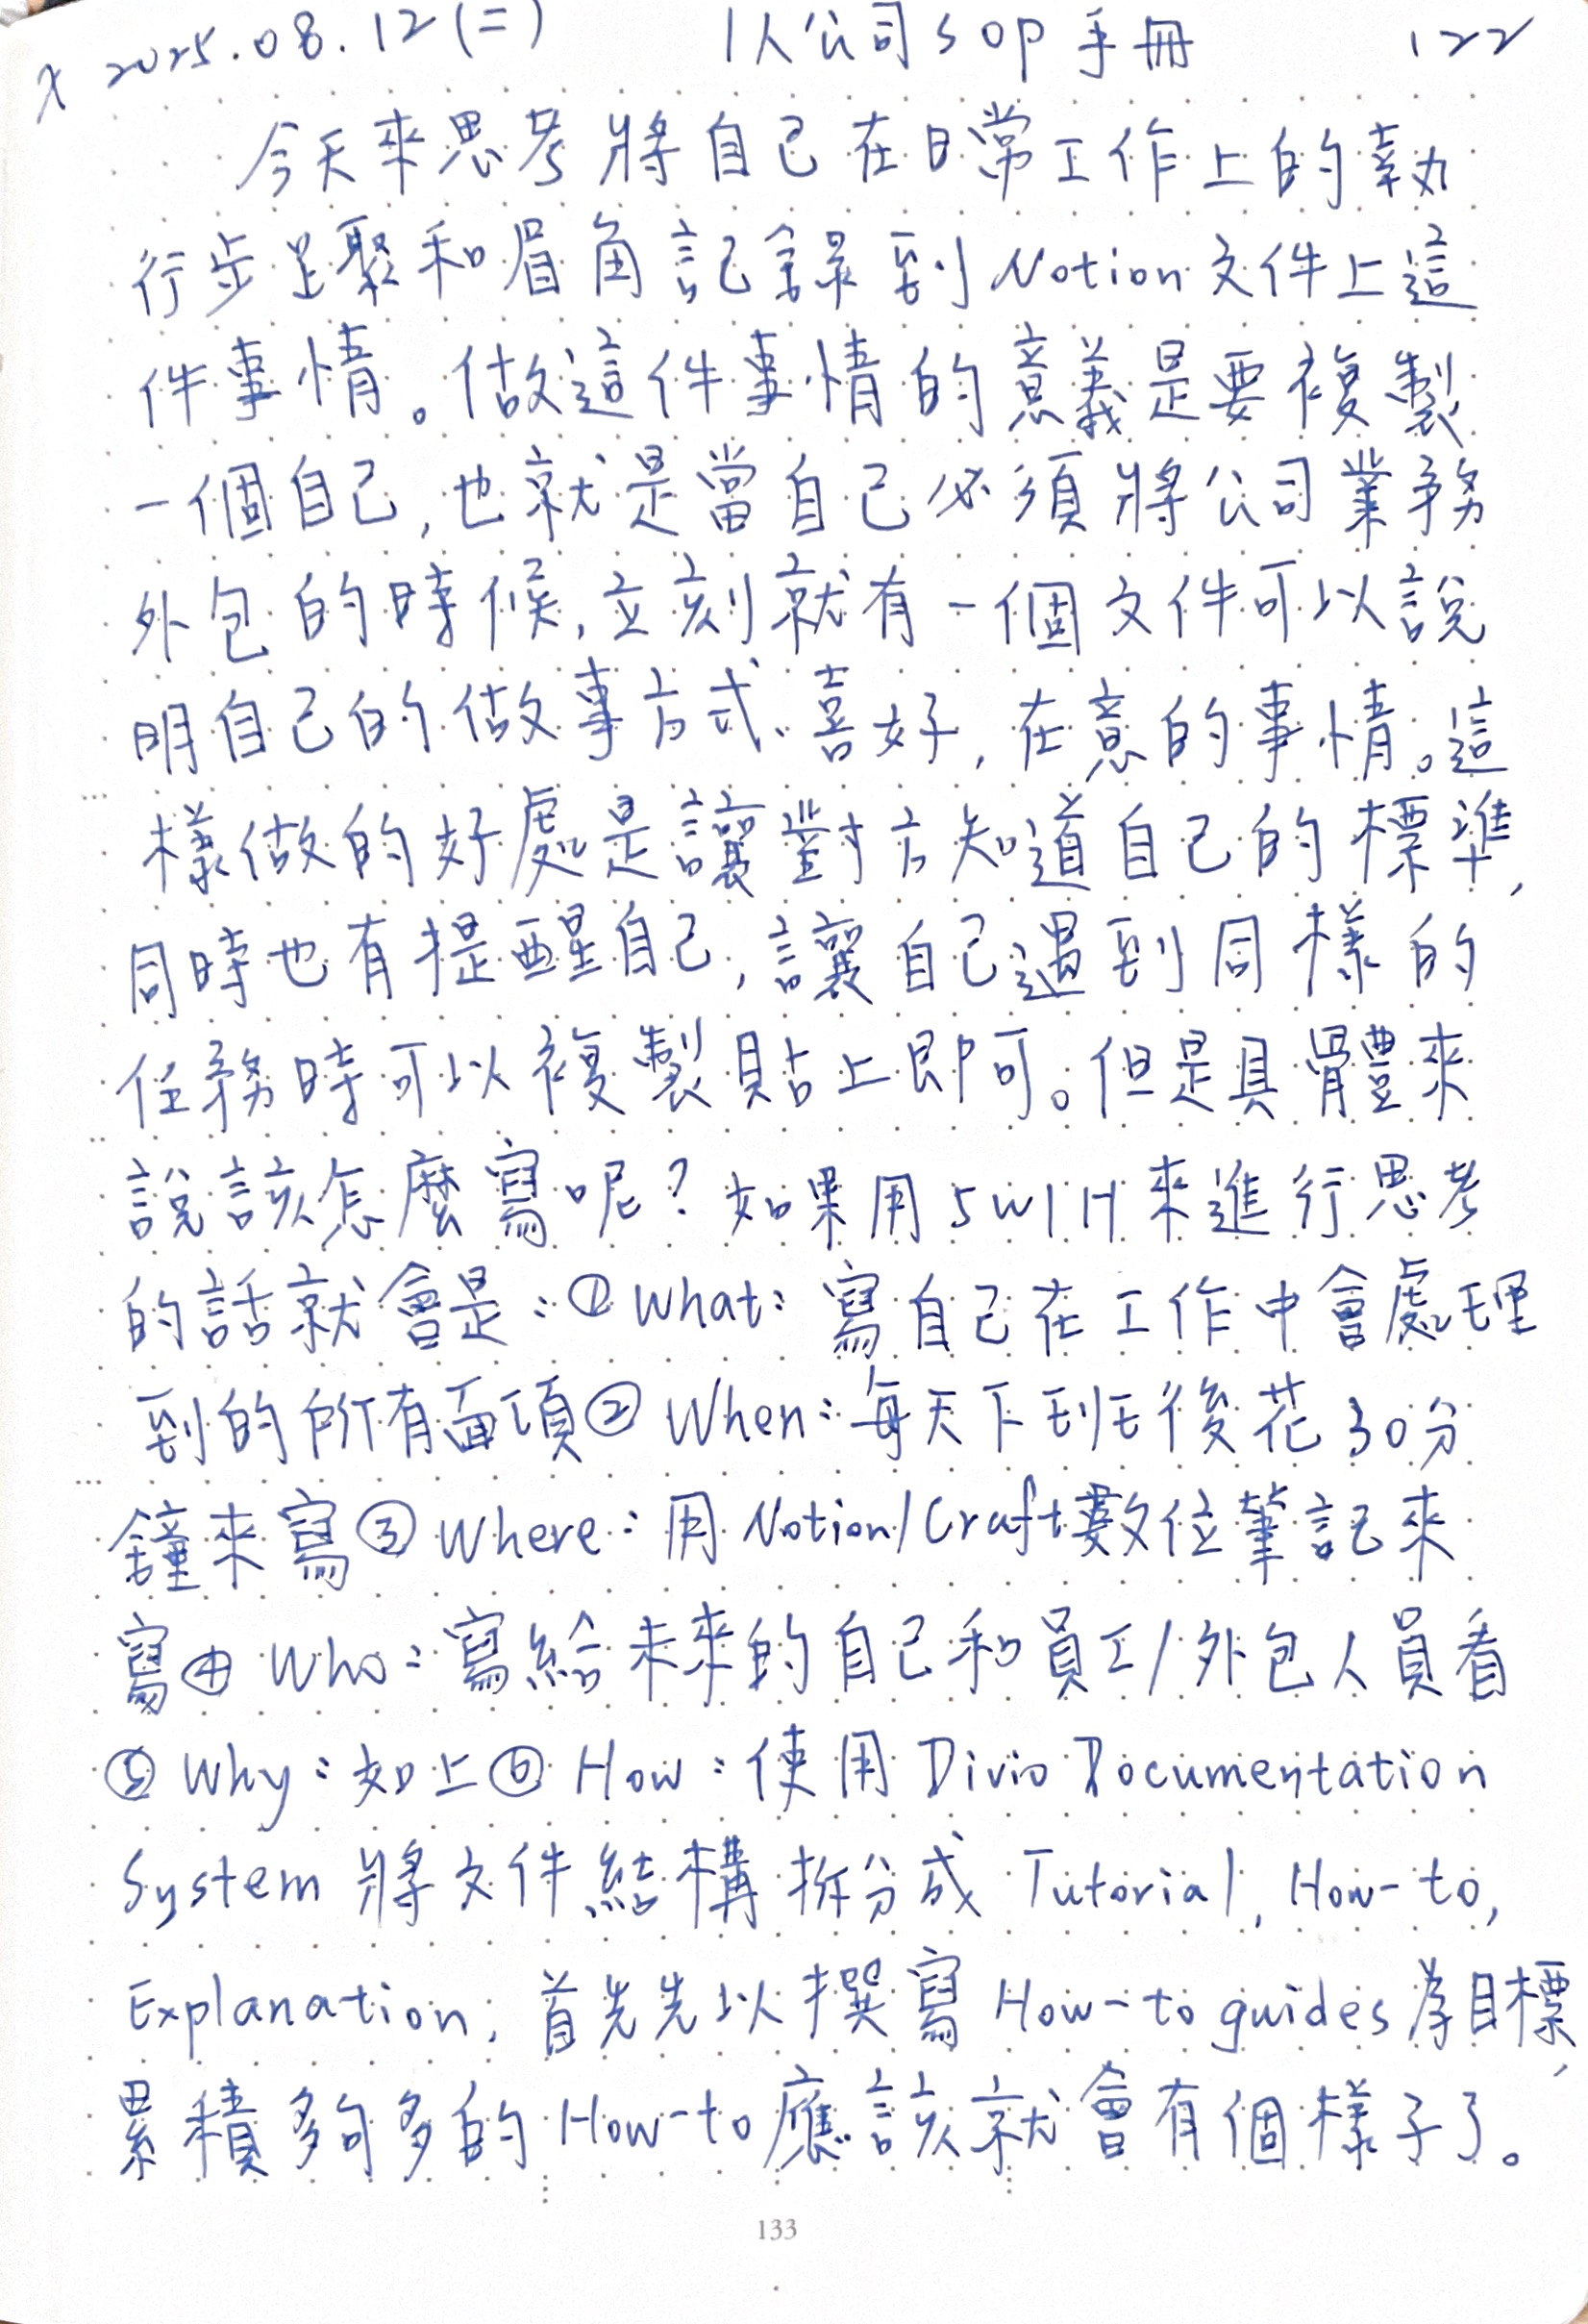 x 2025.08.12(二) 1人公司SOP手冊 122
今天來思考將自己在日常工作上的執
行步驟和眉角記錄到Notion文件上這
件事情。做這件事情的意義是要複製
一個自己,也就是當自己必須將公司業務
外包的時候,立刻就有一個文件可以說
明自己的做事方式、喜好,在意的事情。這
樣做的好處是讓對方知道自己的標準,
同時也有提醒自己,讓自己遇到同樣的
任務時可以複製貼上即可。但是具體來
說該怎麼寫呢?如果用5W1H來進行思考
的話就會是:①What:寫自己在工作中會處理
到的所有面項②When:每天下班後花30分
鐘來寫③Where:用Notion/Craft數位筆記來
寫④Who:寫給未來的自己和員工/外包人員看
⑤Why:如上⑥How:使用Divio Documentation
System將文件結構拆分成Tutorial,How-to,
Explanation,首先先以撰寫How-to guides為目標,
累積夠多的How-to應該就會有個樣子了。
133